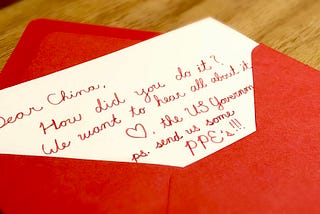 Dear China,
How did you do it?
We want to hear all about it
♡. the US Governm
ps. send us some
PPE's!!!